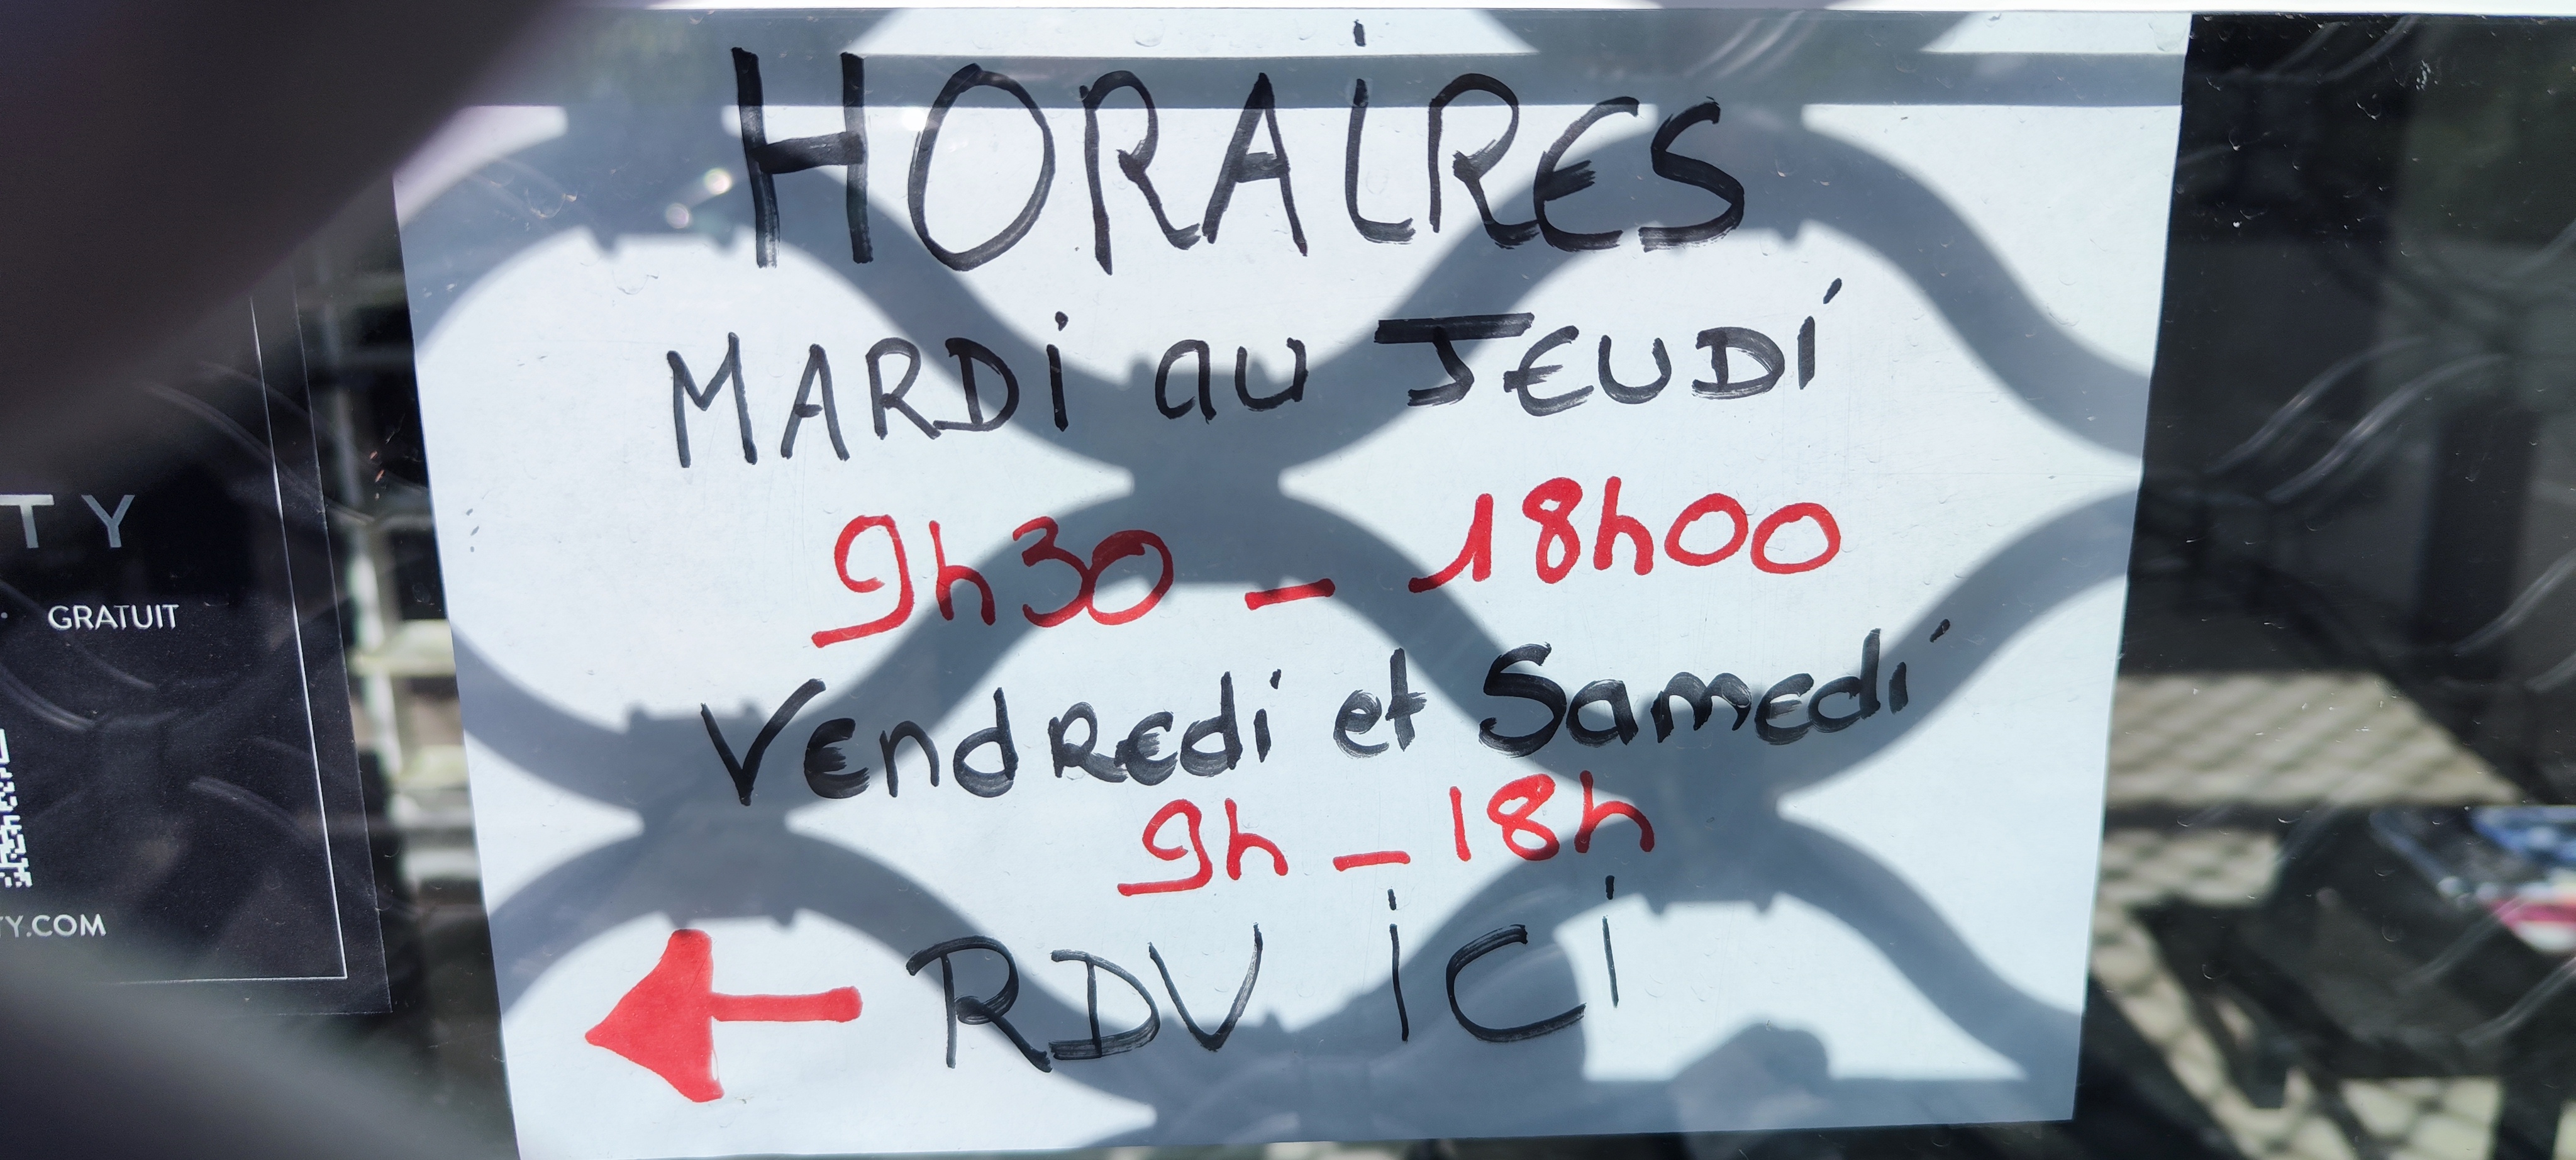 HORAiRES
MARDi au JEUDi
9h30 - 18h00
Vendredi et Samedi
9h - 18h
RDV iCi
TY
GRATUIT
TY.COM